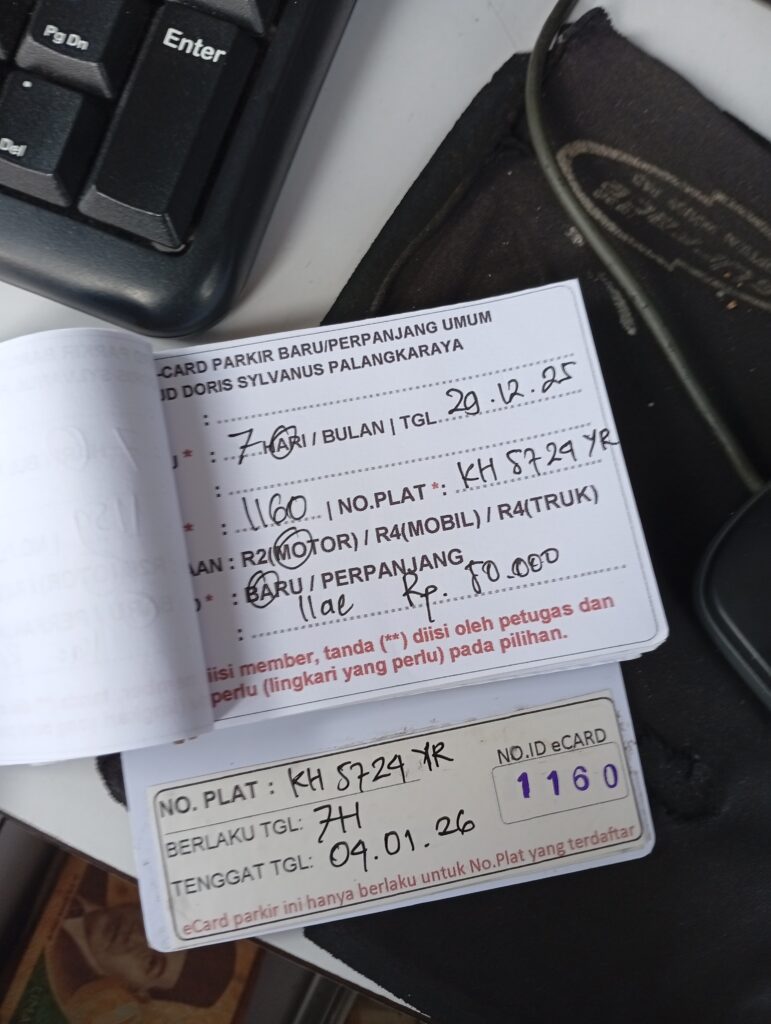 Pg Dn
Enter
Del
-CARD PARKIR BARU/PERPANJANG UMUM
UD DORIS SYLVANUS PALANGKARAYA
:
* : 7 HARI / BULAN | TGL. 29.12.25
:
* : 1160 | NO.PLAT *: KH 5724 YR
AAN : R2(MOTOR) / R4(MOBIL) / R4(TRUK)
* : BARU / PERPANJANG
: Rp. 50.000
iisi member, tanda (**) diisi oleh petugas dan
perlu (lingkari yang perlu) pada pilihan.
NO. PLAT : KH 5724 YR
NO.ID eCARD
1160
BERLAKU TGL: 7H
TENGGAT TGL: 04.01.26
eCard parkir ini hanya berlaku untuk No.Plat yang terdaftar